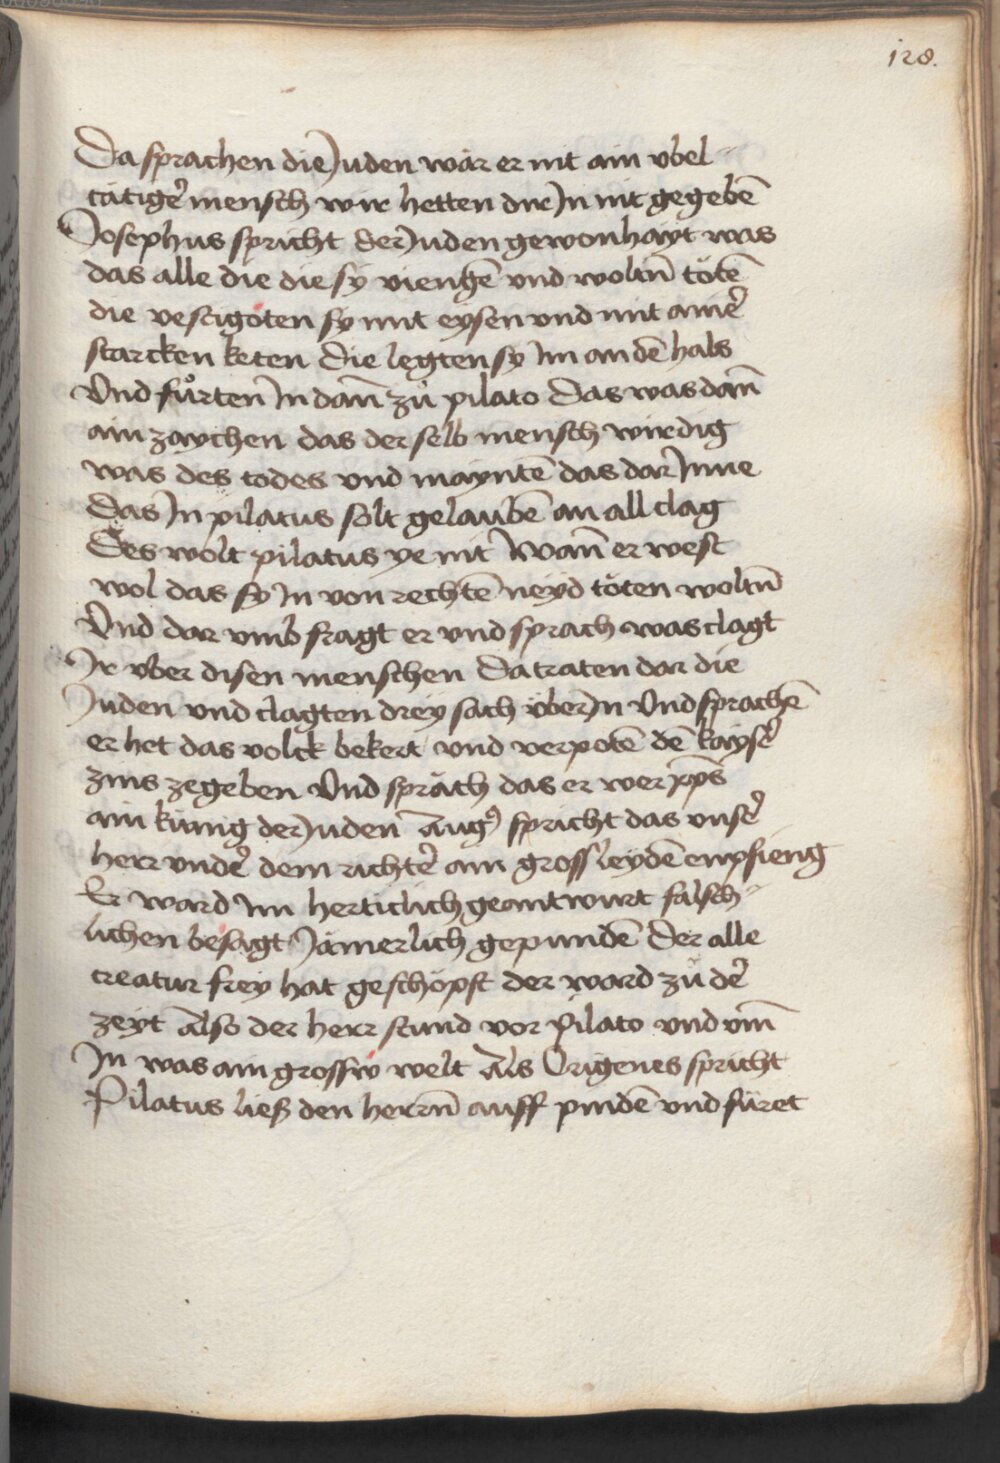 128.
Da sprachen die Juden wär er nit ain vbel
tätigẽ mensch wir hetten dir Jn nit gegebẽ
Josephus spricht der Juden gewonhayt was
das alle die die sy viengẽ vnd woltñ tötẽ
die vestigoten sy mit eysen vnd mit ainẽ
starcken keten Die legten sy Jm an dẽ hals
Vnd fůrten Jn dañ zů pilato Das was dañ
ain zaychen das der selb mensch wirdig
was des todes vnd mayntẽ das dar Jnne
Das Jn pilatus solt gelaubẽ an all clag
Des wolt pilatus ye nit Wañ er west
wol das sy Jn von rechtẽ neyd töten woltñ
Vnd dar vmb fragt er vnd sprach was clagt
Jr vber disen menschen Da traten dar die
Juden vnd clagten drey sach vber Jn Vnd sprachẽ
er het das volck bekert vnd verpotẽ dẽ kaysẽ
zins zegeben Vnd sprách das er wer xp̃s
ain künig der Juden Augꝰ spricht das vnsẽ
herr vndẽ dem richtẽ ain gross leydẽ enpfieng
Er ward Jm herticlich geantwurt falsch
lichen besagt Jämerlich gepundẽ Der alle
creatur frey hat geschöpft der ward zů dẽ
zeyt Also der herr stund vor Pilato vnd vm̃
Jn was ain grossw welt Als Origenes spricht
Pilatus ließ den herrñ auff pindẽ vnd füret